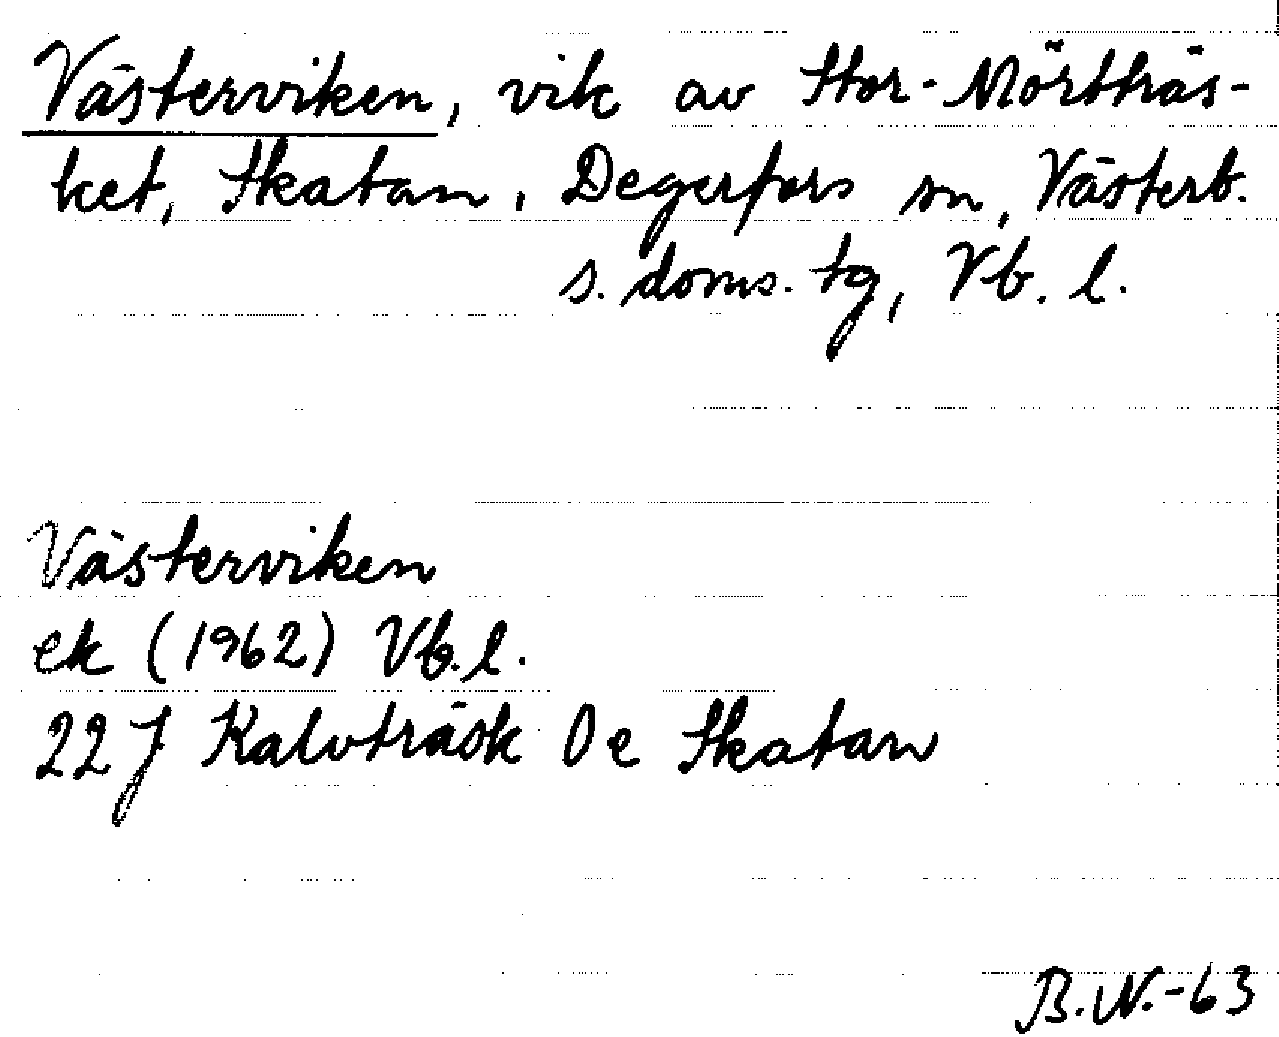 Västerviken, vik av Stor-Mörtträs-
ket, Skatan, Degerfors sn, Västerb.
s. doms. tg, Vb. l.
Västerviken
ek (1962) Vb. l.
22 J Kalvträsk 0 e Skatan
B.N.-63